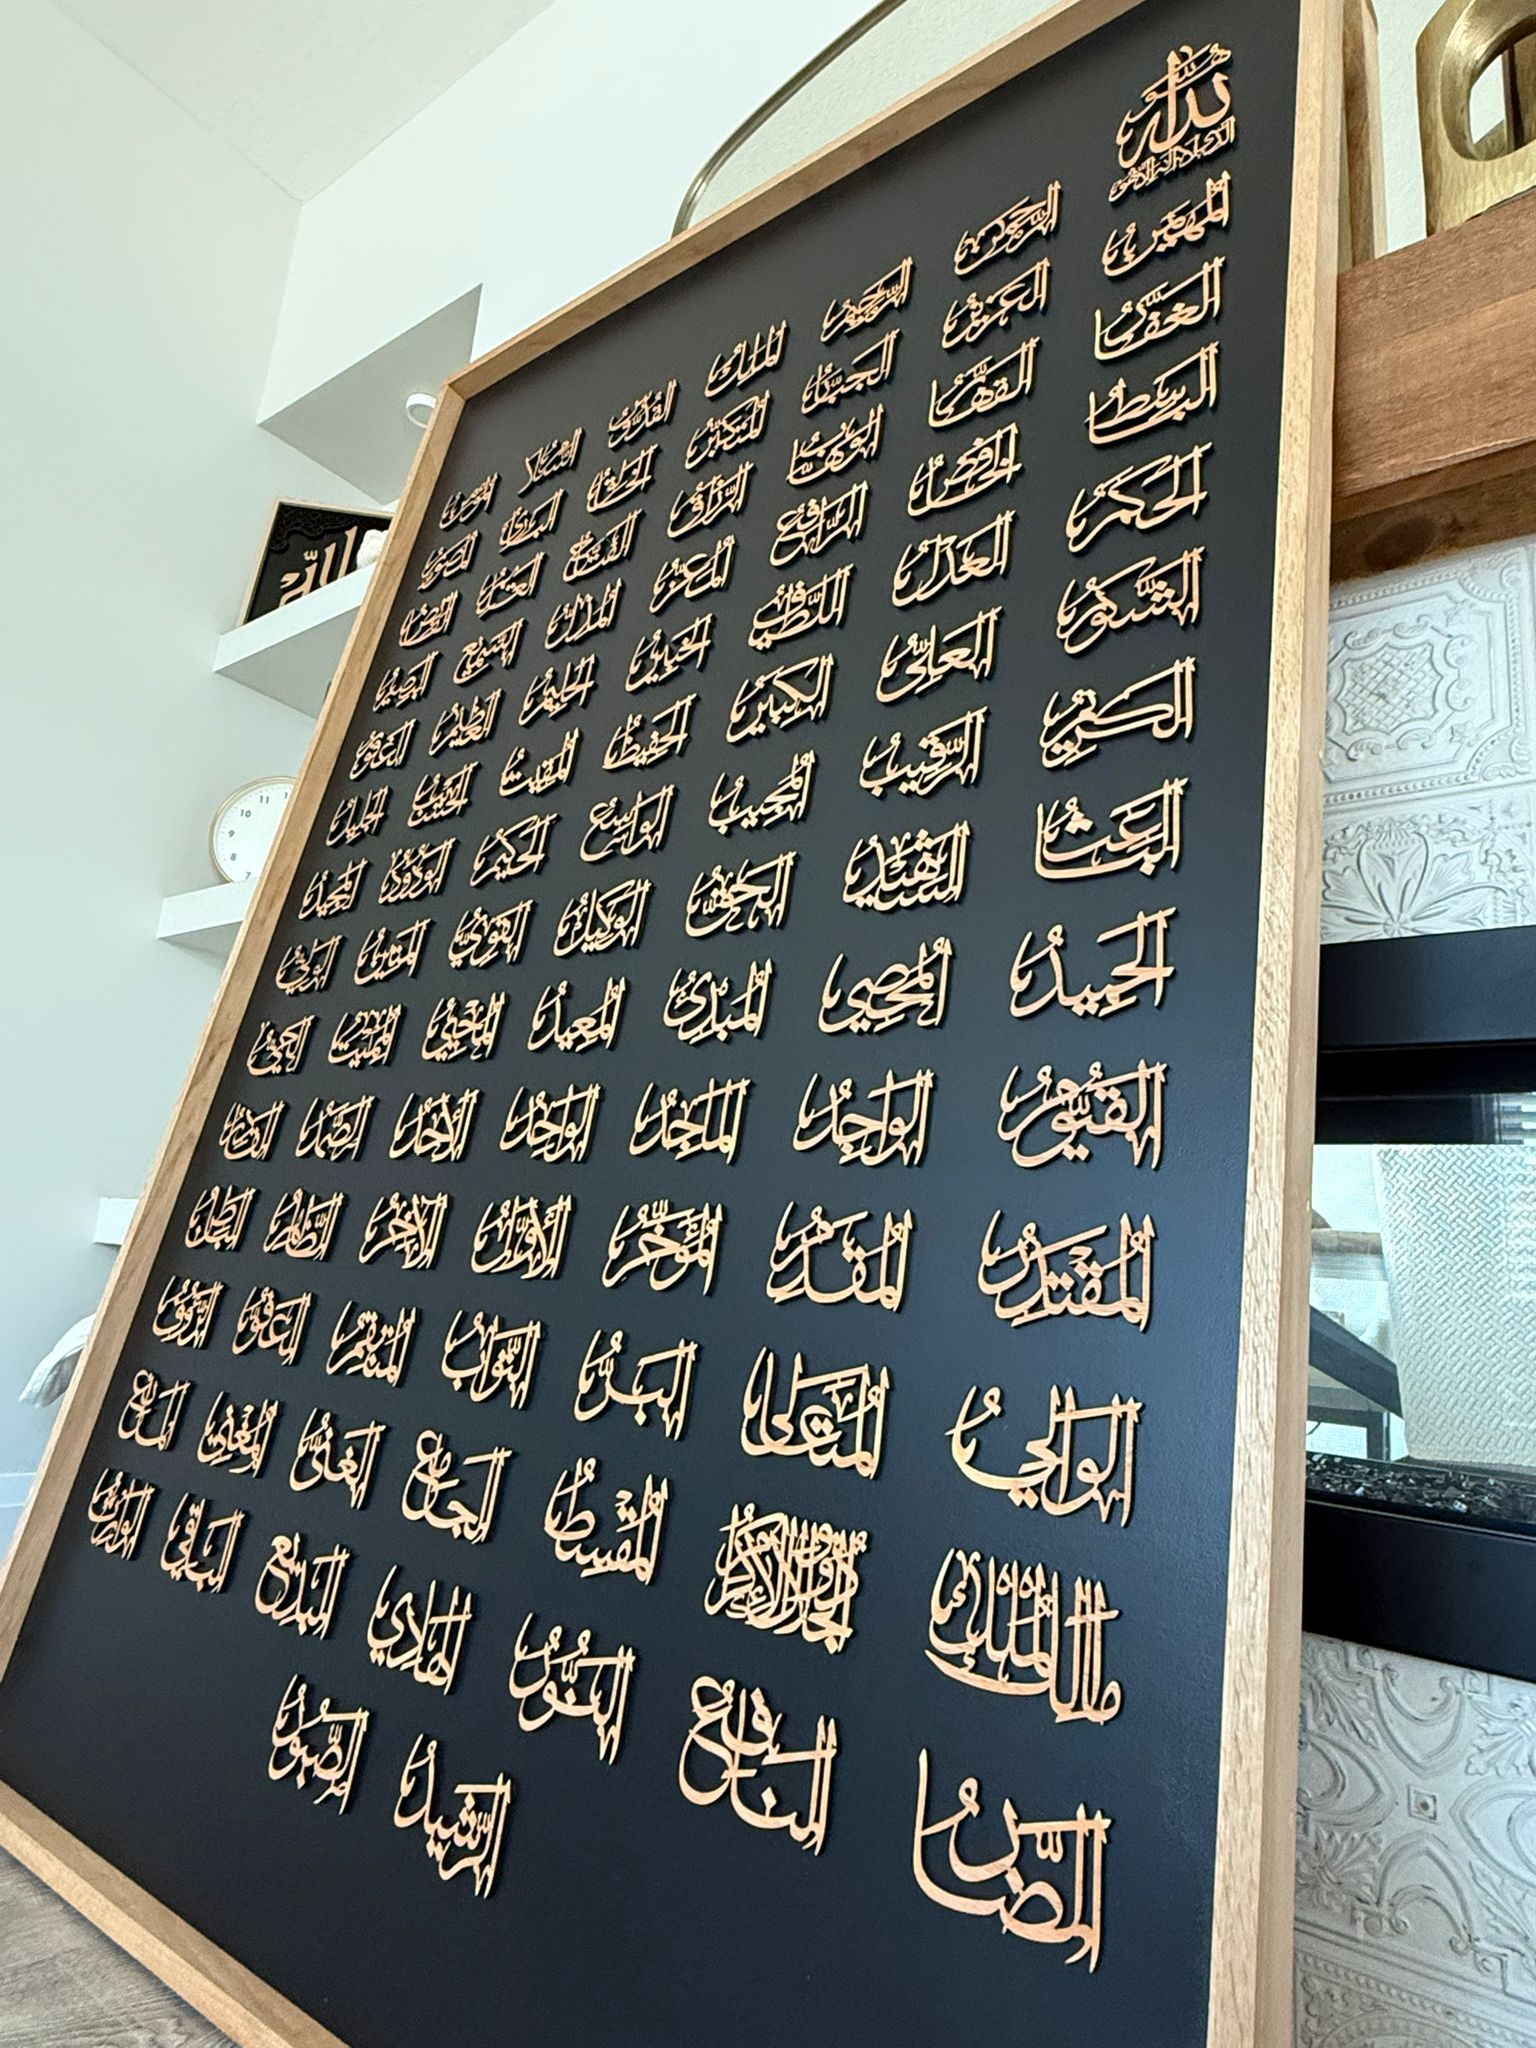 هو الله الذي لا إله إلا هو الرحمن الرحيم الملك القدوس السلام المؤمن
المهيمن العزيز الجبار المتكبر الخالق البارئ المصور
الغفار القهار الوهاب الرزاق الفتاح العليم القابض
الباسط الخافض الرافع المعز المذل السميع البصير
الحكم العدل اللطيف الخبير الحليم العظيم الغفور
الشكور العلي الكبير الحفيظ المقيت الحسيب الجليل
الكريم الرقيب المجيب الواسع الحكيم الودود المجيد
الباعث الشهيد الحق الوكيل القوي المتين الولي
الحميد المحصي المبدئ المعيد المحيي المميت الحي
القيوم الواجد الماجد الواحد الأحد الصمد القادر
المقتدر المقدم المؤخر الأول الآخر الظاهر الباطن
الوالي المتعالي البر التواب المنتقم العفو الرؤوف
مالك الملك ذو الجلال والإكرام المقسط الجامع الغني المغني المانع
الضار النافع النور الهادي البديع الباقي الوارث
الرشيد الصبور
الله
11
10
9
8
7